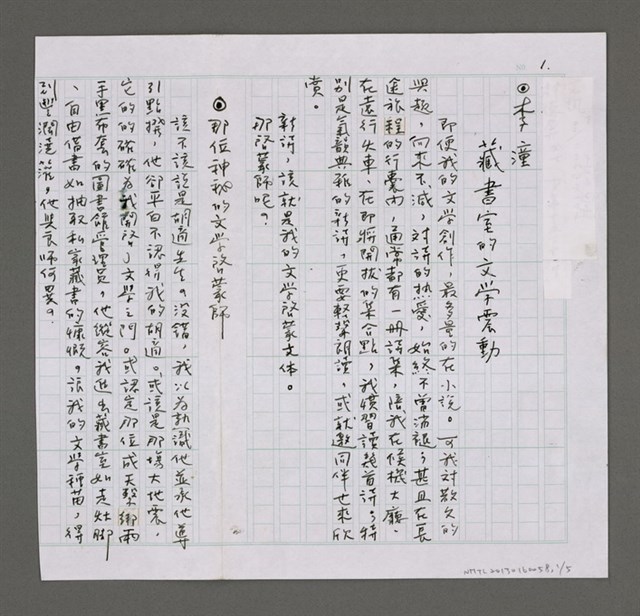 1.
◎李潼
藏書室的文學震動
即便我的文學創作，最多量的在小說。可我對散文的
興趣，向來不減，對詩的熱愛，始終不曾消褪；甚且在長
途旅程的行囊內，通常都有一冊詩集，陪我在候機大廳、
在遠行火車、在即將開拔的集合點，我慣習讀幾首詩；特
別是氣韻典雅的新詩，更要輕聲朗讀，或就邀同伴也來欣
賞。
新詩，該就是我的文學啟蒙文体。
那啟蒙師呢？
◎那位神秘的文學啟蒙師
該不該說是胡適先生？沒錯，我以為熟識他並承他導
引點撥，他卻平白不認得我的胡適。或該是那場大地震，
它的的確確為我開啟了文學之門。或認定那位成天緊綁兩
手黑布套的圖書館管理員，他縱容我進出藏書室如走灶腳
、自由借書如抽取私家藏書的慷慨，讓我的文學種苗，得
到豐潤澆灌，他與良師何異？
NMTL20130160058,1/5